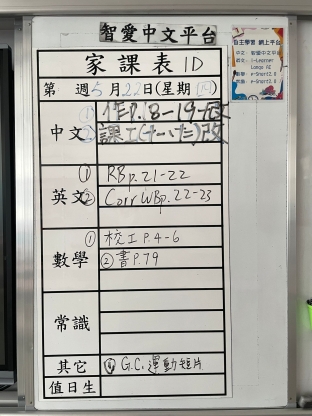 智愛中文平台
家課表 1D
第 週 5月22日(星期四)
中文
① 作P.18-19-改
② 課工(十一,十二)改
英文
① RBp.21-22
② Corr WBp.22-23
數學
① 校工P.4-6
② 書P.79
常識
其它
① G.C.運動短片
值日生
自主學習 網上平台
中文：智愛中文平台